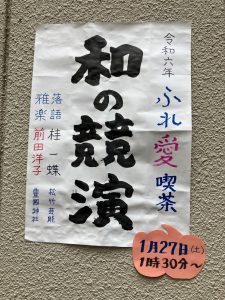 令和六年
ふれ愛喫茶
和の競演
落語 桂 一蝶 松竹芸能
雅楽 前田洋子 豊國神社
1月27日(土)
1時30分～